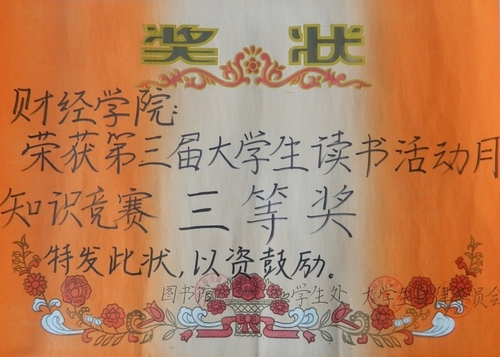 奖状
财经学院:
荣获第三届大学生读书活动月
知识竞赛 三等奖
特发此状,以资鼓励。
图书院 学生处 大学生 委员会